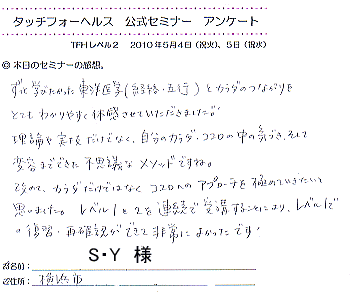 タッチフォーヘルス 公式セミナー アンケート
TFHレベル2 2010年5月4日(祝火)、5日(祝水)
◎ 本日のセミナーの感想。
ずっと学びたかった東洋医学(経絡・五行)とカラダのつながりを
とてもわかりやすく体感させていただきました。
理論や実技だけでなく、自分のカラダ・ココロの中の気づき、そして
変容までできた不思議なメソッドですね。
改めて、カラダだけではなくココロへのアプローチを極めていきたいと
思いました。レベル1と2を連続で受講することにより、レベル1で
の復習・再確認ができて非常によかったです!
お名前: S・Y 様
ご住所: 横浜市